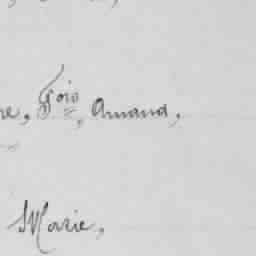 re, Fois, Amand,
Marie,